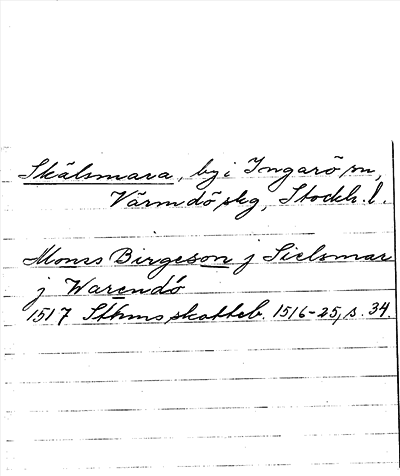 Skälsmara, by i Ingarö sn,
Värmdö skg, Stockh. l.
Mons Birgeson j Sielsmar
j Warendö
1517 Sthms skatteb. 1516-25, s. 34.